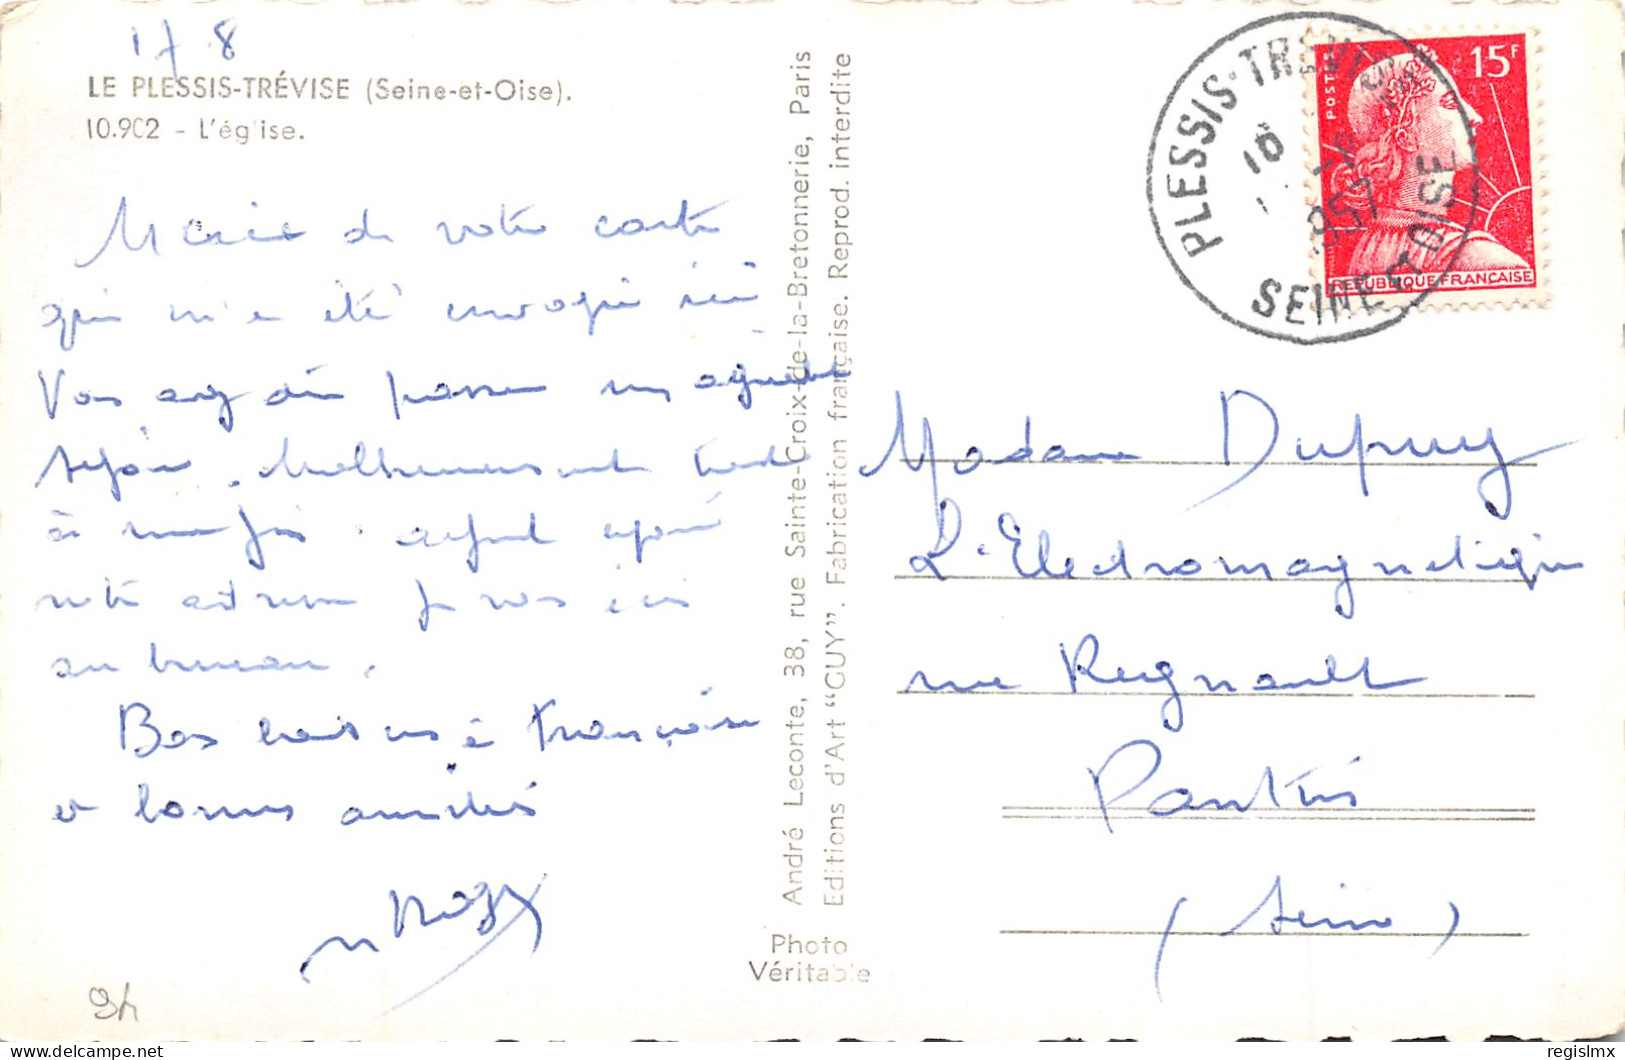 17 8
LE PLESSIS-TRÉVISE (Seine-et-Oise).
10.902 - L'église.
Merci de votre carte
qui m'a été envoyée ici
Vous avez dû passer un agréable
séjour. Malheureusement tout
à une fin.
au bureau.
Bons baisers à Françoise
et bonnes amitiés
André Leconte, 38, rue Sainte-Croix-de-la-Bretonnerie, Paris
Editions d'Art "GUY". Fabrication française. Reprod. interdite
Photo
Véritable
PLESSIS-TREVISE
SEINE ET OISE
POSTES
15F
REPUBLIQUE FRANÇAISE
Madame Dupuy
L'Electromagnétique
rue Regnault
Pantin
(Seine)
regislmx